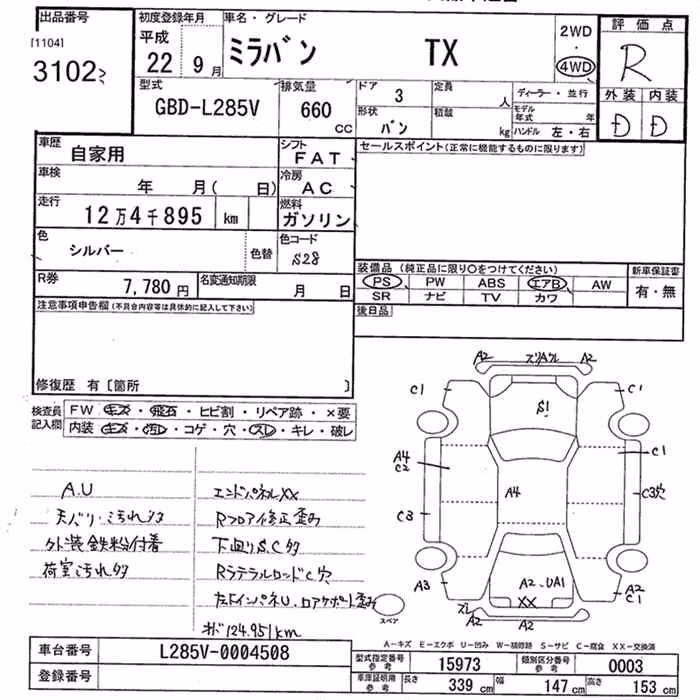 出品番号
[1104]
3102
初度登録年月
平成
22 9 月
車名・グレード
ミラバン TX
2WD
・
4WD
評価点
R
外装 内装
D D
型式
GBD-L285V
排気量
660
cc
ドア 3
形状 バン
定員
人
積載
kg
ディーラー・並行
モデル年式 年
ハンドル 左・右
車歴
自家用
シフト
FAT
セールスポイント(正常に機能するものに限ります)
車検
年 月( 日)
冷房
AC
走行
12万4千895 km
燃料
ガソリン
色
シルバー
色替
色コード
S28
R券
7,780円
名変通知期限
月 日
装備品 (純正品に限り○をつけてください)
PS PW ABS エアB AW
SR ナビ TV カワ
新車保証書
有・無
後日品
注意事項申告欄(不具合内容等は具体的に記入して下さい)
修復歴 有〔箇所 〕
検査員記入欄
FW キズ・飛石・ヒビ割・リペア跡・×要
内装 キズ・汚レ・コゲ・穴・スレ・キレ・破レ
A.U
天バリ・ミ汚れ多
外装鉄粉付着
荷室汚れ多
エンドパネルXX
Rフロア修正歪み
下廻りS.C多
RラテラルロッドC穴
左右インパネU、ロアサポート歪み
オド124.951km
A2 スリAクル A2
C1 C1
S1
A4
C2
C1
A4
C3穴
C3
A3
A2、UA1
XX
A2
C1
スレ
A2 A2
スペア
A-キズ E-エクボ U-凹み W-補修跡 S-サビ C-腐食 XX-交換済
車台番号 L285V-0004508
登録番号
型式指定番号
参考
15973
類別区分番号
参考
0003
車庫証明用
参考
長さ 339 cm
幅 147 cm
高さ 153 cm